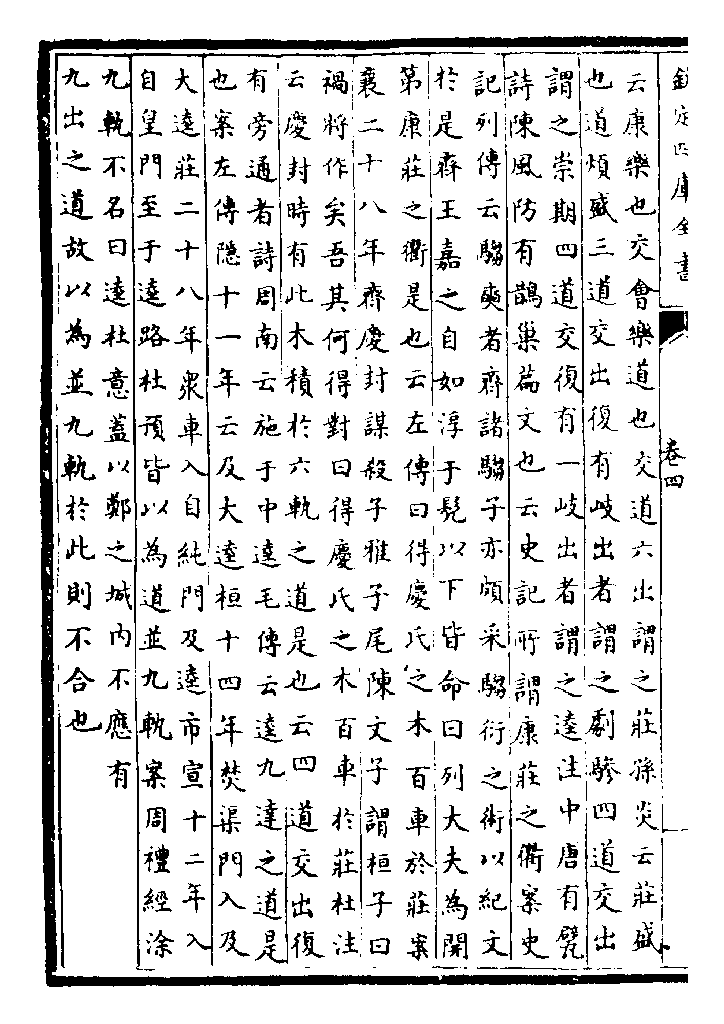 欽定四庫全書
卷四
云康樂也交會樂道也交道六出謂之莊孫炎云莊盛
也道煩盛三道交出復有歧出者謂之劇驂四道交出
謂之崇期四道交復有一歧出者謂之逵注中唐有甓
詩陳風防有鵲巢篇文也云史記所謂康莊之衢案史
記列傳云騶奭者齊諸騶子亦頗采騶衍之術以紀文
於是齊王嘉之自如淳于髡以下皆命曰列大夫為開
第康莊之衢是也云左傳曰得慶氏之木百車於莊案
襄二十八年齊慶封謀殺子雅子尾陳文子謂桓子曰
禍將作矣吾其何得對曰得慶氏之木百車於莊杜注
云慶封時有此木積於六軌之道是也云四道交出復
有旁通者詩周南云施于中逵毛傳云逵九達之道是
也案左傳隱十一年云及大逵桓十四年焚渠門入及
大逵莊二十八年衆車入自純門及逵市宣十二年入
自皇門至于逵路杜預皆以為道並九軌案周禮經涂
九軌不名曰逵杜意蓋以鄭之城内不應有
九出之道故以為並九軌於此則不合也